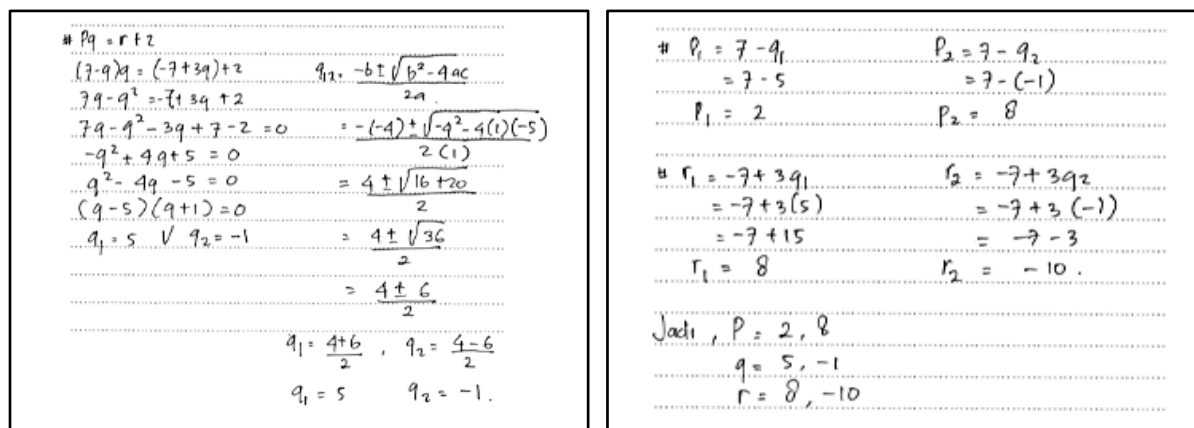 # Pq = r + 2
(7-q)q = (-7+3q)+2
7q - q² = -7 + 3q + 2
7q - q² - 3q + 7 - 2 = 0
-q² + 4q + 5 = 0
q² - 4q - 5 = 0
(q-5)(q+1) = 0
q₁ = 5 V q₂ = -1
q₁₂ = (-b ± √(b² - 4ac))/2a
= (-(-4) ± √(-4² - 4(1)(-5)))/2(1)
= (4 ± √(16 + 20))/2
= (4 ± √36)/2
= (4 ± 6)/2
q₁ = (4+6)/2 , q₂ = (4-6)/2
q₁ = 5 q₂ = -1.
# P₁ = 7 - q₁
= 7 - 5
P₁ = 2
P₂ = 7 - q₂
= 7 - (-1)
P₂ = 8
# r₁ = -7 + 3q₁
= -7 + 3(5)
= -7 + 15
r₁ = 8
r₂ = -7 + 3q₂
= -7 + 3(-1)
= -7 - 3
r₂ = -10.
Jadi, P = 2, 8
q = 5, -1
r = 8, -10